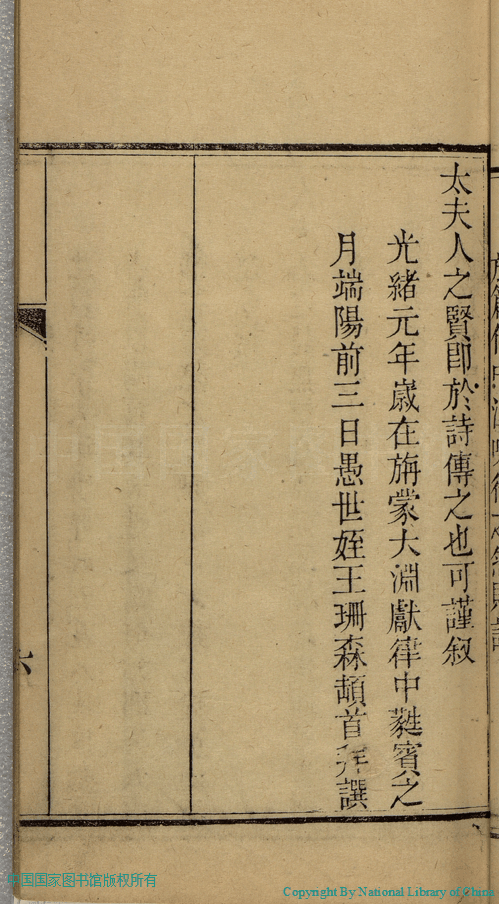 太夫人之賢即於詩傳之也可謹叙
光緒元年歲在旃蒙大淵獻律中蕤賓之
月端陽前三日愚世姪王珊森頓首拜譔
六
中国国家图书馆
中国国家图书馆版权所有
Copyright By National Library of China